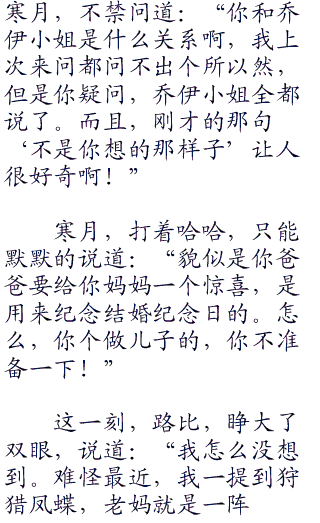 寒月，不禁问道：“你和乔
伊小姐是什么关系啊，我上
次来问都问不出个所以然，
但是你疑问，乔伊小姐全都
说了。而且，刚才的那句
‘不是你想的那样子’让人
很好奇啊！”
寒月，打着哈哈，只能
默默的说道：“貌似是你爸
爸要给你妈妈一个惊喜，是
用来纪念结婚纪念日的。怎
么，你个做儿子的，你不准
备一下！”
这一刻，路比，睁大了
双眼，说道：“我怎么没想
到。难怪最近，我一提到狩
猎凤蝶，老妈就是一阵